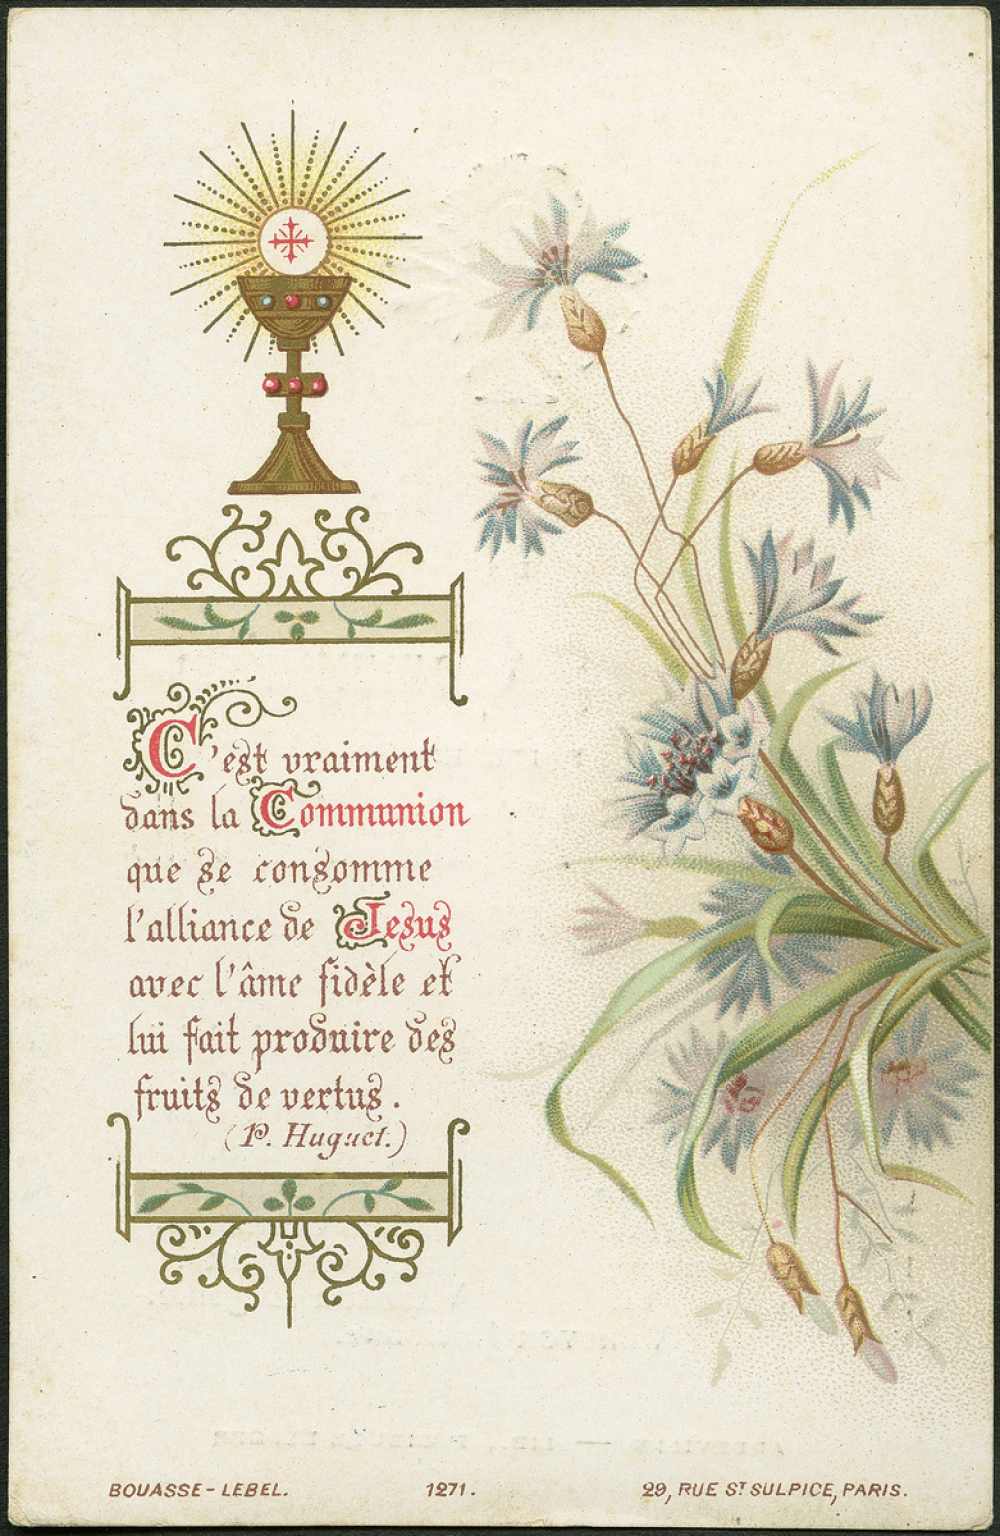 C'est vraiment
dans la Communion
que se consomme
l'alliance de Jesus
avec l'âme fidèle et
lui fait produire des
fruits de vertus.
(P. Huguet.)
BOUASSE-LEBEL. 1271. 29, RUE ST SULPICE, PARIS.